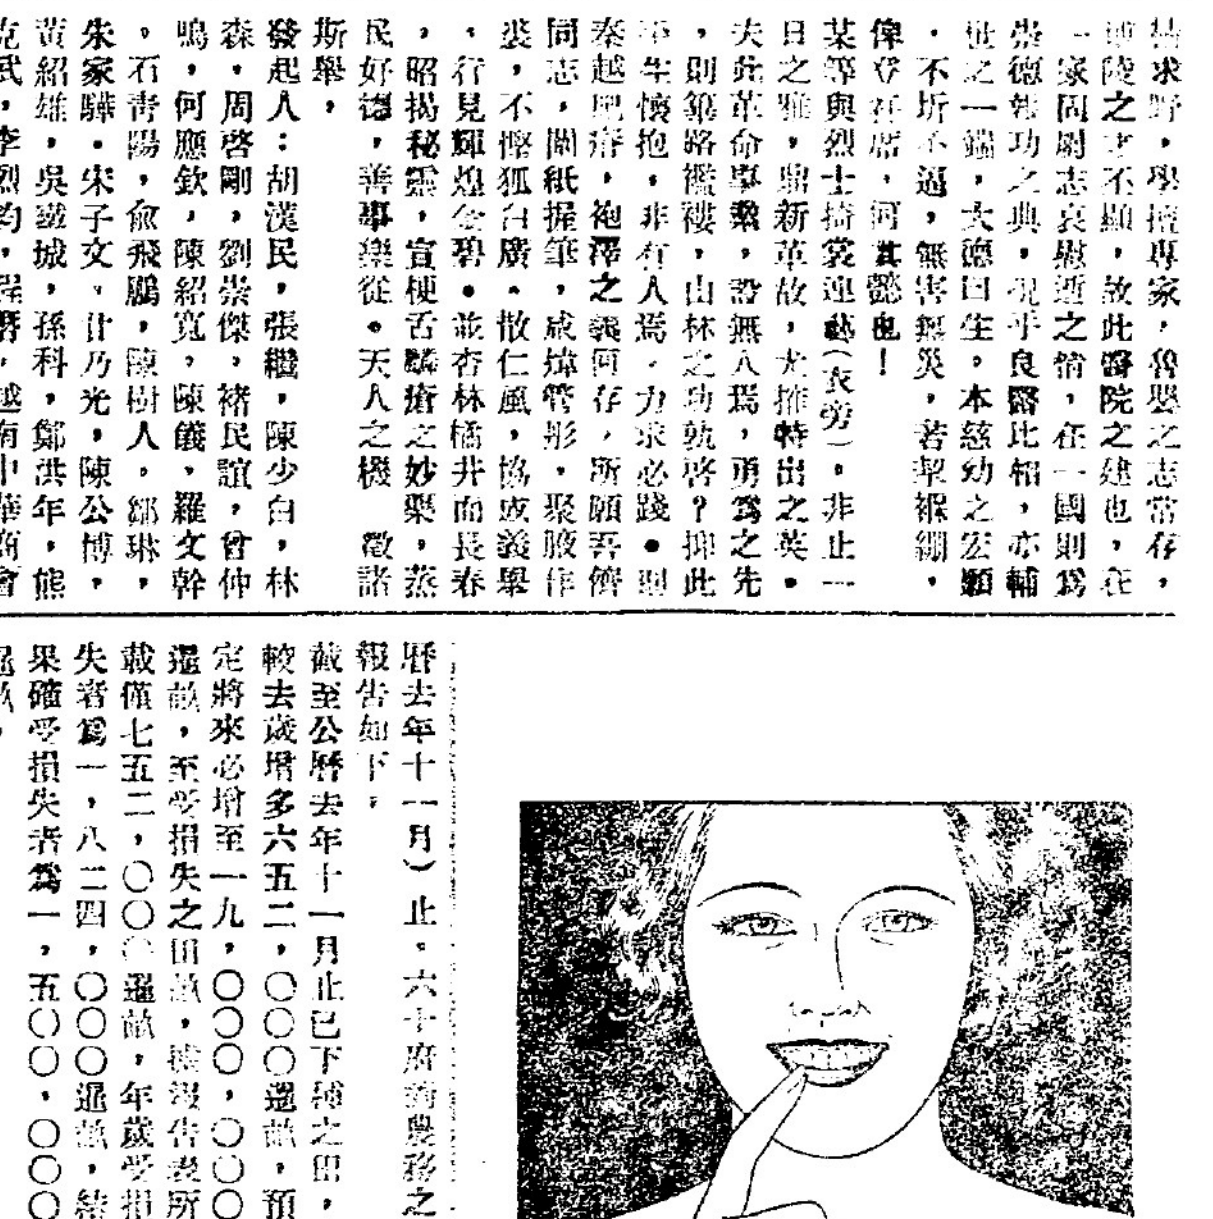 求野，學擅專家，

陵之才不顯，故此醫院之建也，在
一家固尉志哀慰逝之情，在一國則爲
崇德報功之典，況乎良醫比相，亦輔
世之一端，大德曰生，本慈幼之宏願
，不坼不逼，無害無災，若
俾登衽席，何其懿也！
某等與烈士掎裳連藝（衣旁）。非止一
日之雅，鼎新革故，尤推特出之英。
夫此革命事業，設無人焉，勇爲之先
，則篳路襤褸，山林之功孰啓？抑此
平生懷抱，非有人焉，力求必踐。則
秦越肥瘠，袍澤之義何存，所願吾儕
同志，開紙握筆，咸煒管彤，聚腋作
裘，不慳狐白廣，散仁風，協成義舉
，行見輝煌金碧。並杏林橘井而長春
，昭揭秘靈，宣梗舌瘡之妙藥，蒸
民好德，善事樂從。天人之機　徵諸
斯舉，
發起人：胡漢民，張繼，陳少白，林
森，周啓剛，劉崇傑，褚民誼，曾仲
鳴，何應欽，陳紹寬，陳儀，羅文幹
，石靑陽，俞飛鵬，陳樹人。鄒琳，
朱家驊，宋子文，甘乃光，陳公博，
黃紹雄，吳鐵城，孫科，鄭洪年，熊
克武，李烈鈞，程潛，越南中華商會
曆去年十一月）止。六十府的農務之
報告如下，
截至公曆去年十一月止已下種之田，
較去歲增多六五二，〇〇〇暹畝，預
定將來必增至一九，〇〇〇，〇〇〇
暹畝，至受損失之田畝，據報告表所
載僅七五二，〇〇〇暹畝，年歲受損
失者爲一，八二四，〇〇〇暹畝，結
果確受損失者爲一，五〇〇，〇〇〇
暹畝，